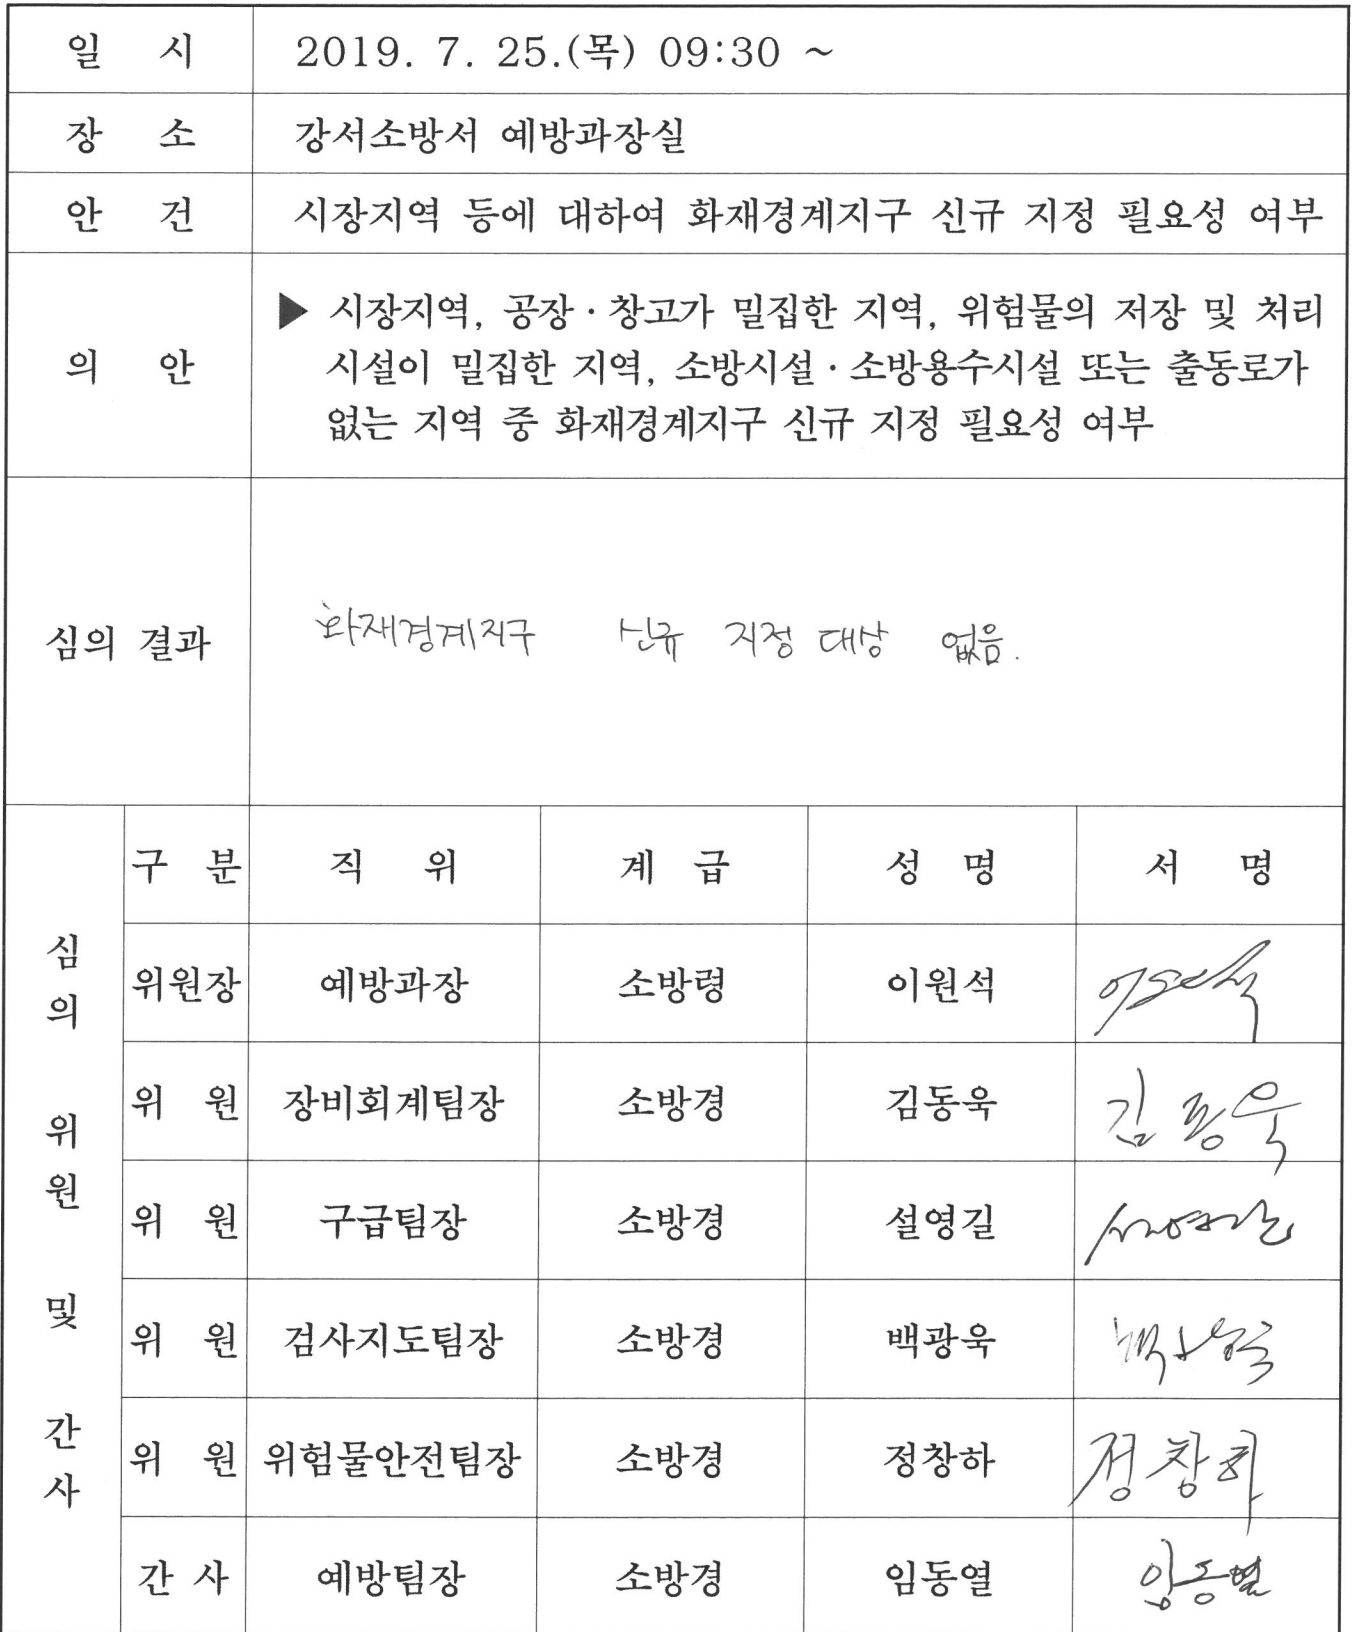 일 시 2019. 7. 25.(목) 09:30 ~
장 소 강서소방서 예방과장실
안 건 시장지역 등에 대하여 화재경계지구 신규 지정 필요성 여부
의 안 ▶ 시장지역, 공장·창고가 밀집한 지역, 위험물의 저장 및 처리
시설이 밀집한 지역, 소방시설·소방용수시설 또는 출동로가
없는 지역 중 화재경계지구 신규 지정 필요성 여부
심의 결과 화재경계지구 신규 지정 대상 없음.
심의 위원 및 간사
구 분 직 위 계 급 성 명 서 명
위원장 예방과장 소방령 이원석 이원석
위 원 장비회계팀장 소방경 김동욱 김동욱
위 원 구급팀장 소방경 설영길
위 원 검사지도팀장 소방경 백광욱
위 원 위험물안전팀장 소방경 정창하 정창하
간 사 예방팀장 소방경 임동열 임동열